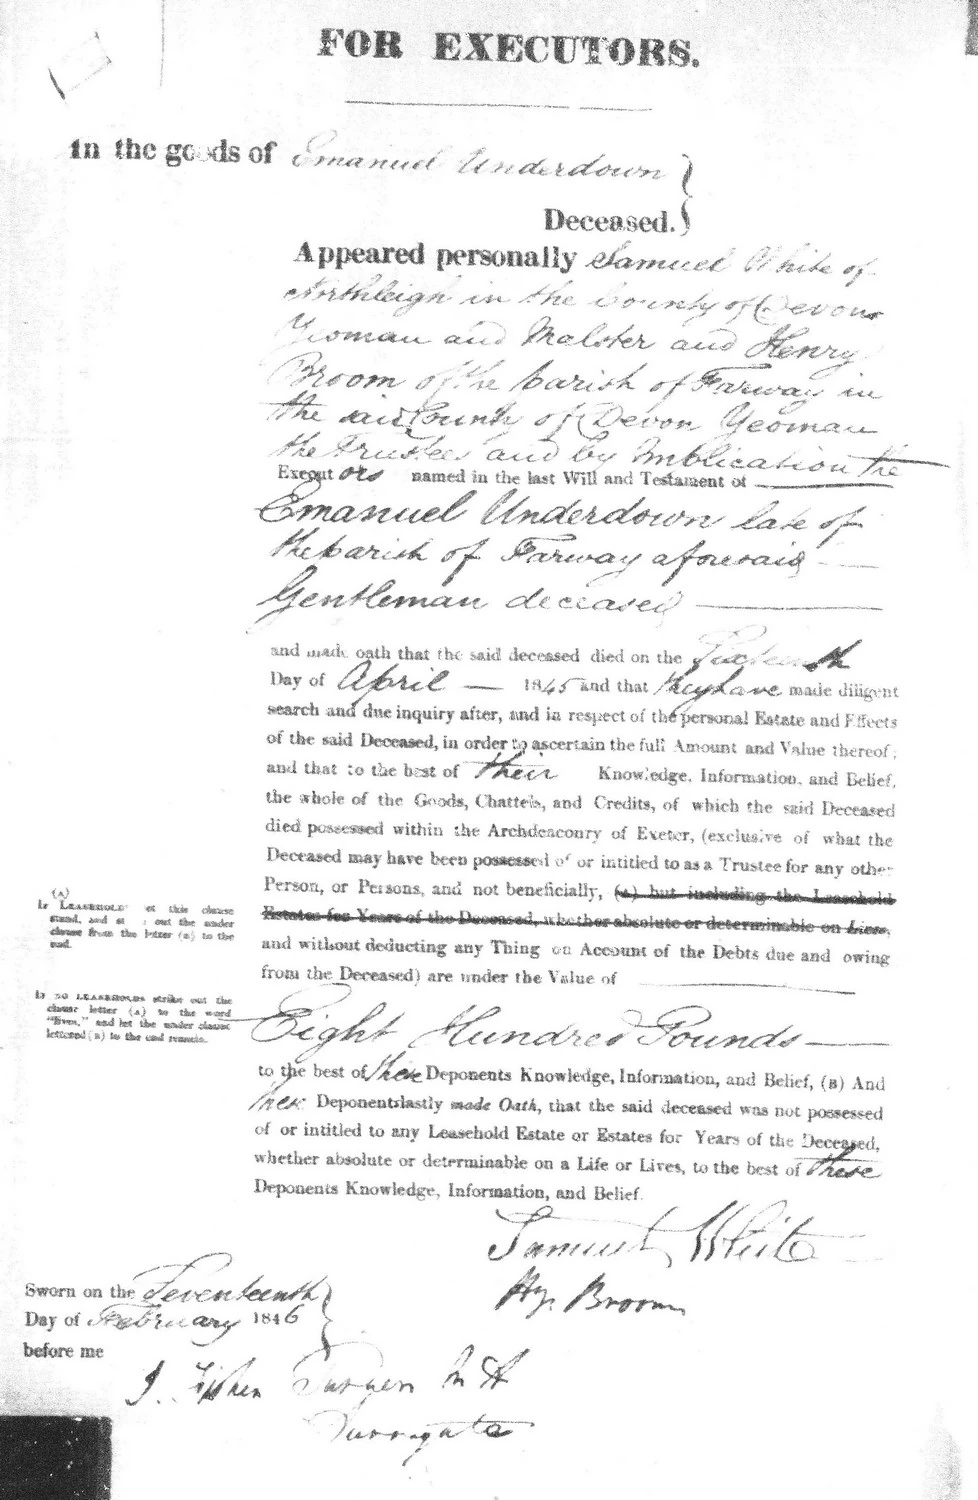 FOR EXECUTORS.
In the goods of Emanuel Underdown
Deceased.
Appeared personally Samuel White of
Northleigh in the County of Devon
Yeoman and Malster and Henry
Broom of the parish of Farway in
the said County of Devon Yeoman
the Trustees and by Implication the
Executors named in the last Will and Testament of
Emanuel Underdown late of
the parish of Farway aforesaid
Gentleman deceased
and made oath that the said deceased died on the Sixteenth
Day of April 1845 and that they have made diligent
search and due inquiry after, and in respect of the personal Estate and Effects
of the said Deceased, in order to ascertain the full Amount and Value thereof;
and that to the best of their Knowledge, Information, and Belief,
the whole of the Goods, Chattels, and Credits, of which the said Deceased
died possessed within the Archdeaconry of Exeter, (exclusive of what the
Deceased may have been possessed of or intitled to as a Trustee for any other
Person, or Persons, and not beneficially, (A) but including the Leasehold
Estates for Years of the Deceased, whether absolute or determinable on Lives,
and without deducting any Thing on Account of the Debts due and owing
from the Deceased) are under the Value of
(A)
If LEASEHOLDS let this clause
stand, and strike out the under
clause from the letter (B) to the
end.
If NO LEASEHOLDS strike out the
clause letter (A) to the word
"lives," and let the under clause
lettered (B) to the end remain.
Eight Hundred Pounds
to the best of these Deponents Knowledge, Information, and Belief, (B) And
these Deponents lastly made Oath, that the said deceased was not possessed
of or intitled to any Leasehold Estate or Estates for Years of the Deceased,
whether absolute or determinable on a Life or Lives, to the best of these
Deponents Knowledge, Information, and Belief.
Samuel White
Hy. Broom
Sworn on the Seventeenth
Day of February 1846
before me
Surrogate